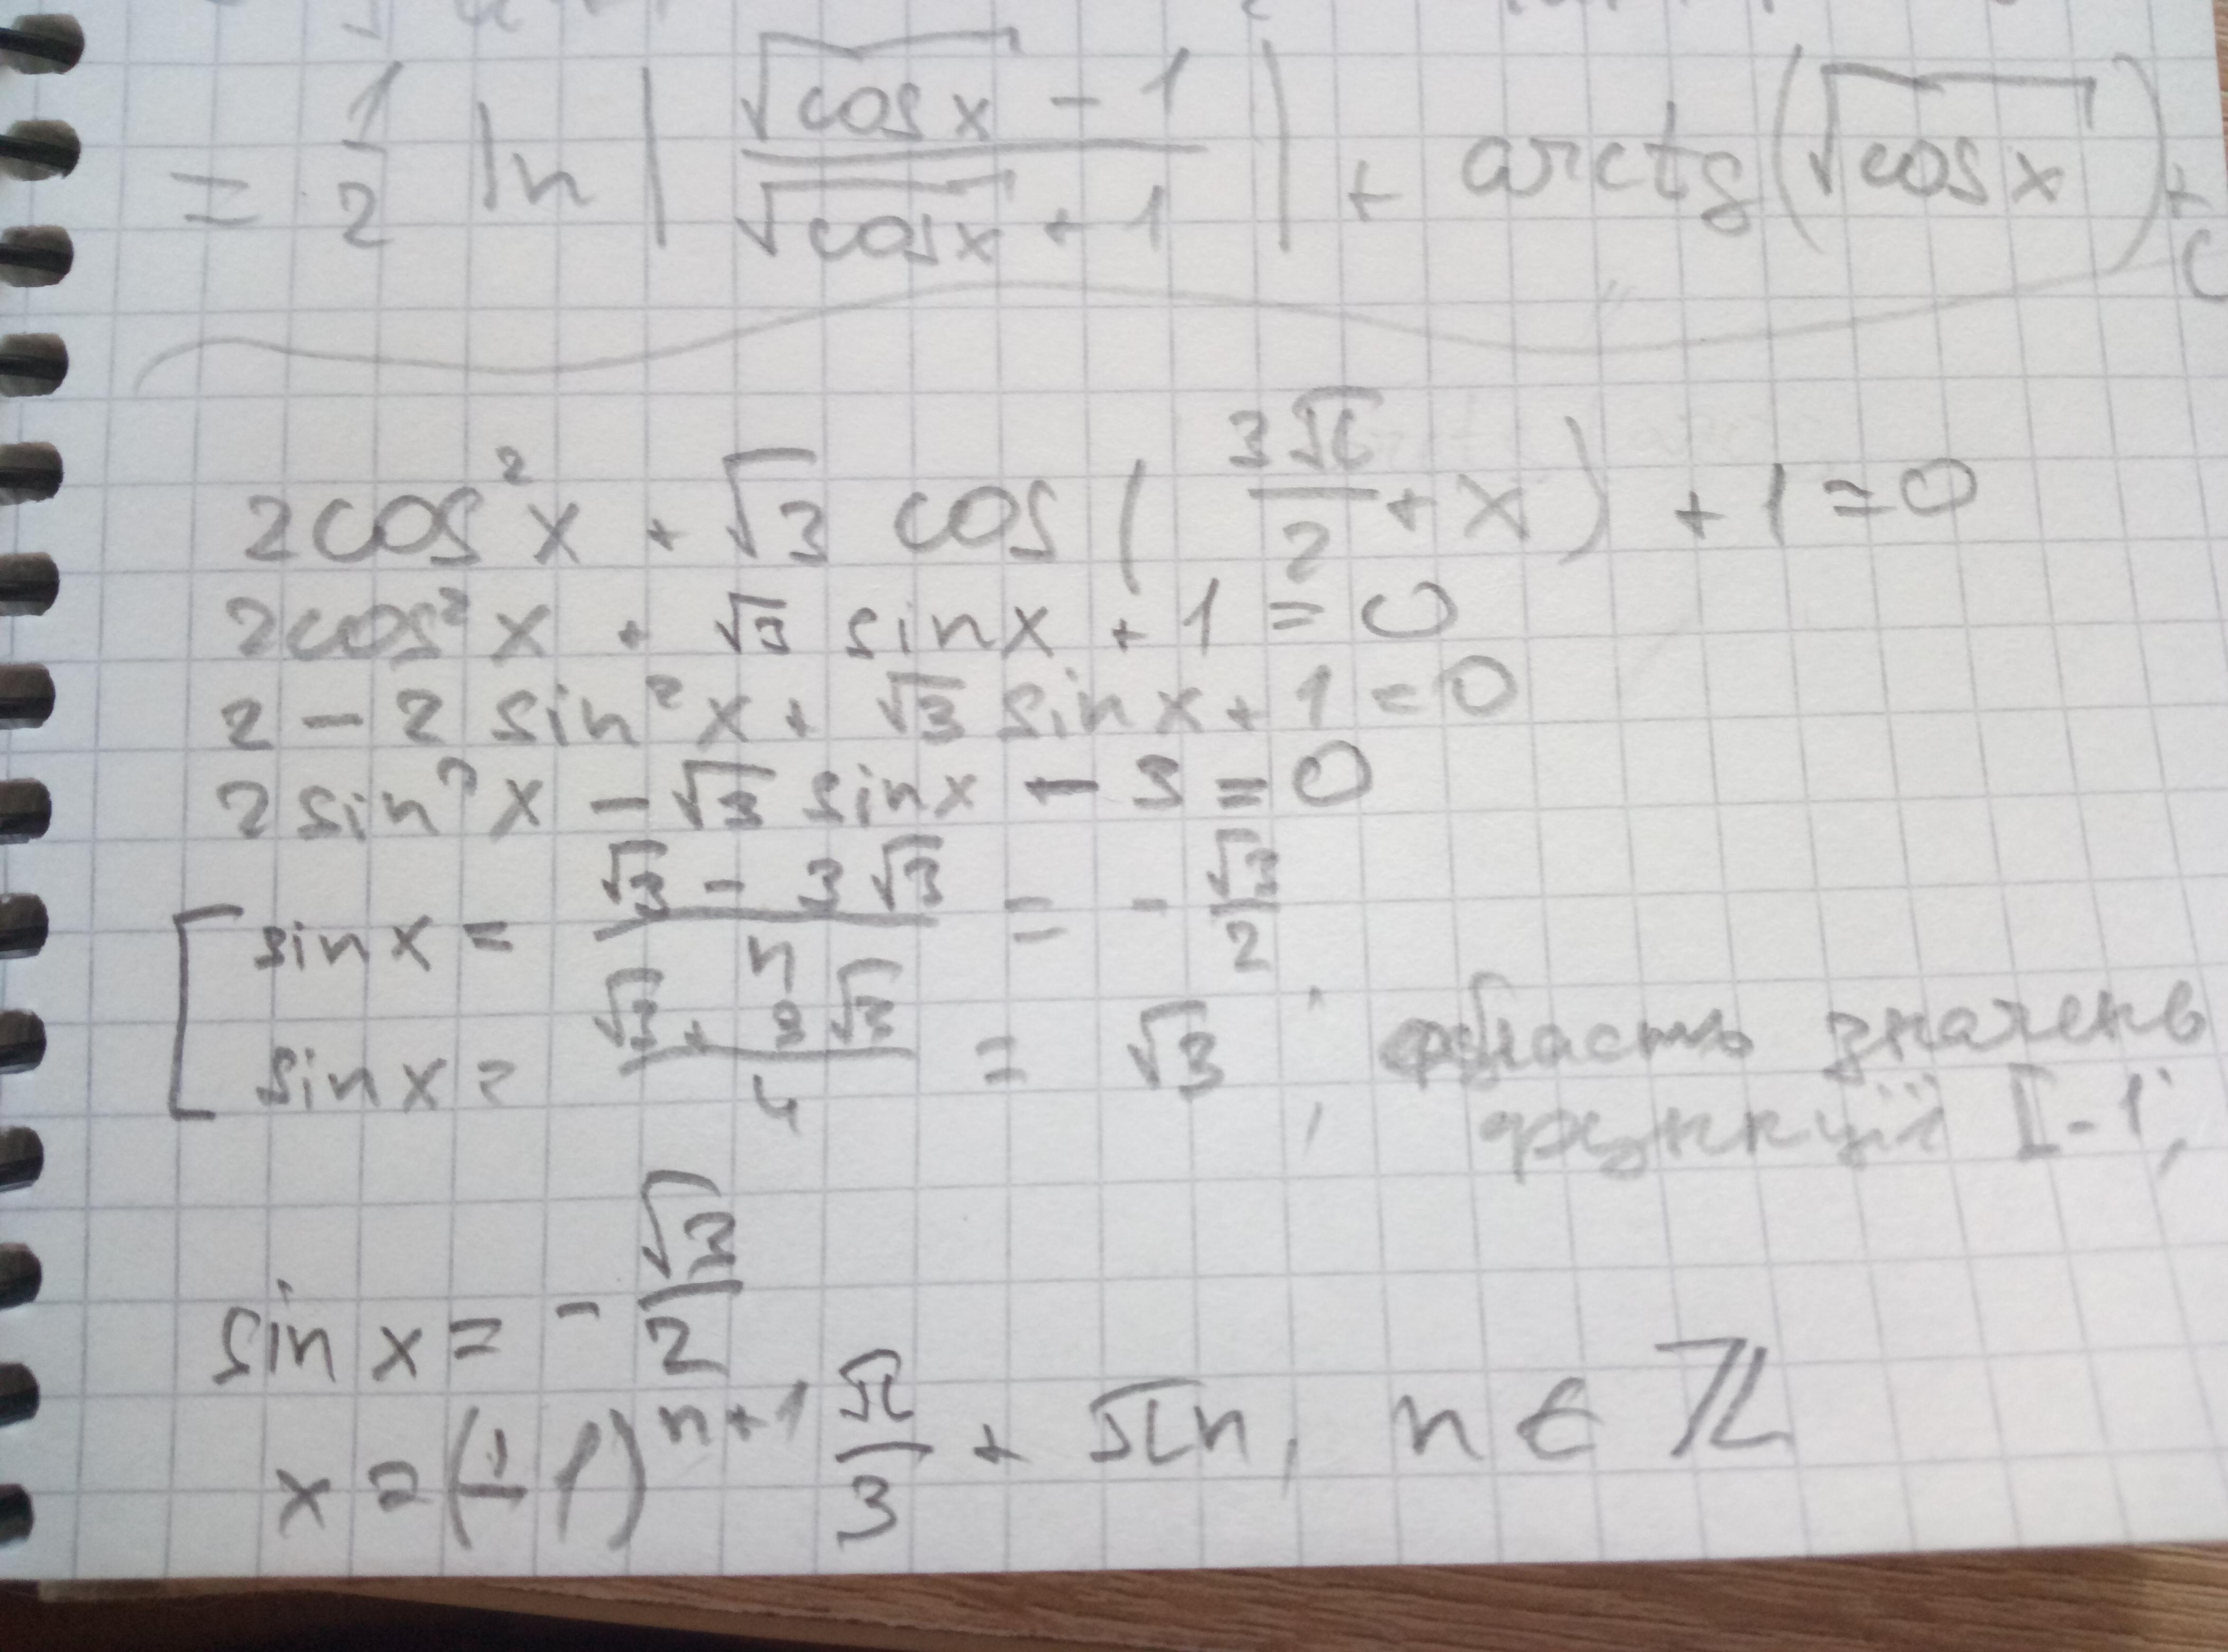 = 1/2 ln | (√cos x - 1)/(√cos x + 1) | + arctg(√cos x) + C
2cos²x + √3 cos(3π/2 + x) + 1 = 0
2cos²x + √3 sinx + 1 = 0
2 - 2 sin²x + √3 sinx + 1 = 0
2 sin²x - √3 sinx - 3 = 0
[ sinx = (√3 - 3√3)/4 = -√3/2
sinx = (√3 + 3√3)/4 = √3 ; область значень
функції [-1;
sin x = -√3/2
x = (-1)ⁿ⁺¹ π/3 + πn, n ∈ ℤ